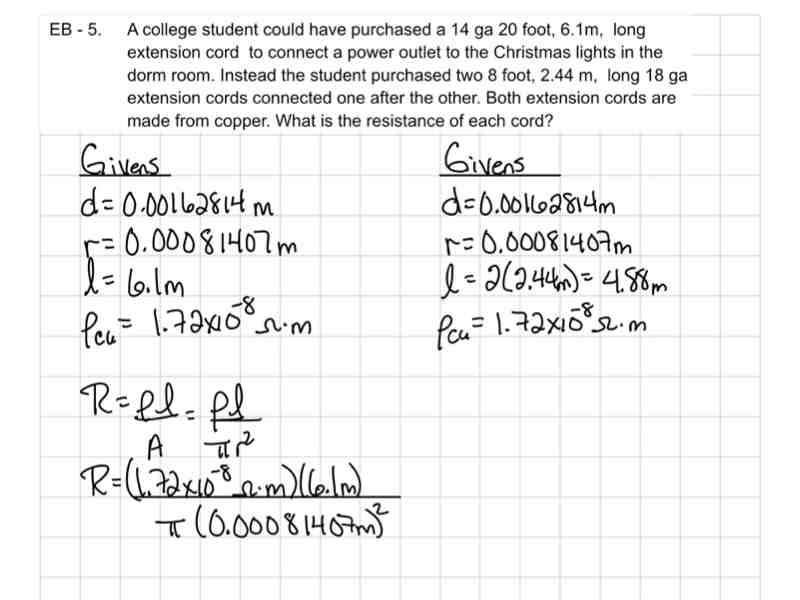 EB - 5. A college student could have purchased a 14 ga 20 foot, 6.1m, long
extension cord to connect a power outlet to the Christmas lights in the
dorm room. Instead the student purchased two 8 foot, 2.44 m, long 18 ga
extension cords connected one after the other. Both extension cords are
made from copper. What is the resistance of each cord?
Givens
d = 0.00162814 m
r = 0.00081407 m
l = 6.1m
ρcu = 1.72x10⁻⁸ Ω·m
R = ρl/A = ρl/πr²
R = (1.72x10⁻⁸ Ω·m)(6.1m)
π(0.00081407m)²
Givens
d = 0.00162814m
r = 0.00081407m
l = 2(2.44m) = 4.88m
ρcu = 1.72x10⁻⁸ Ω·m